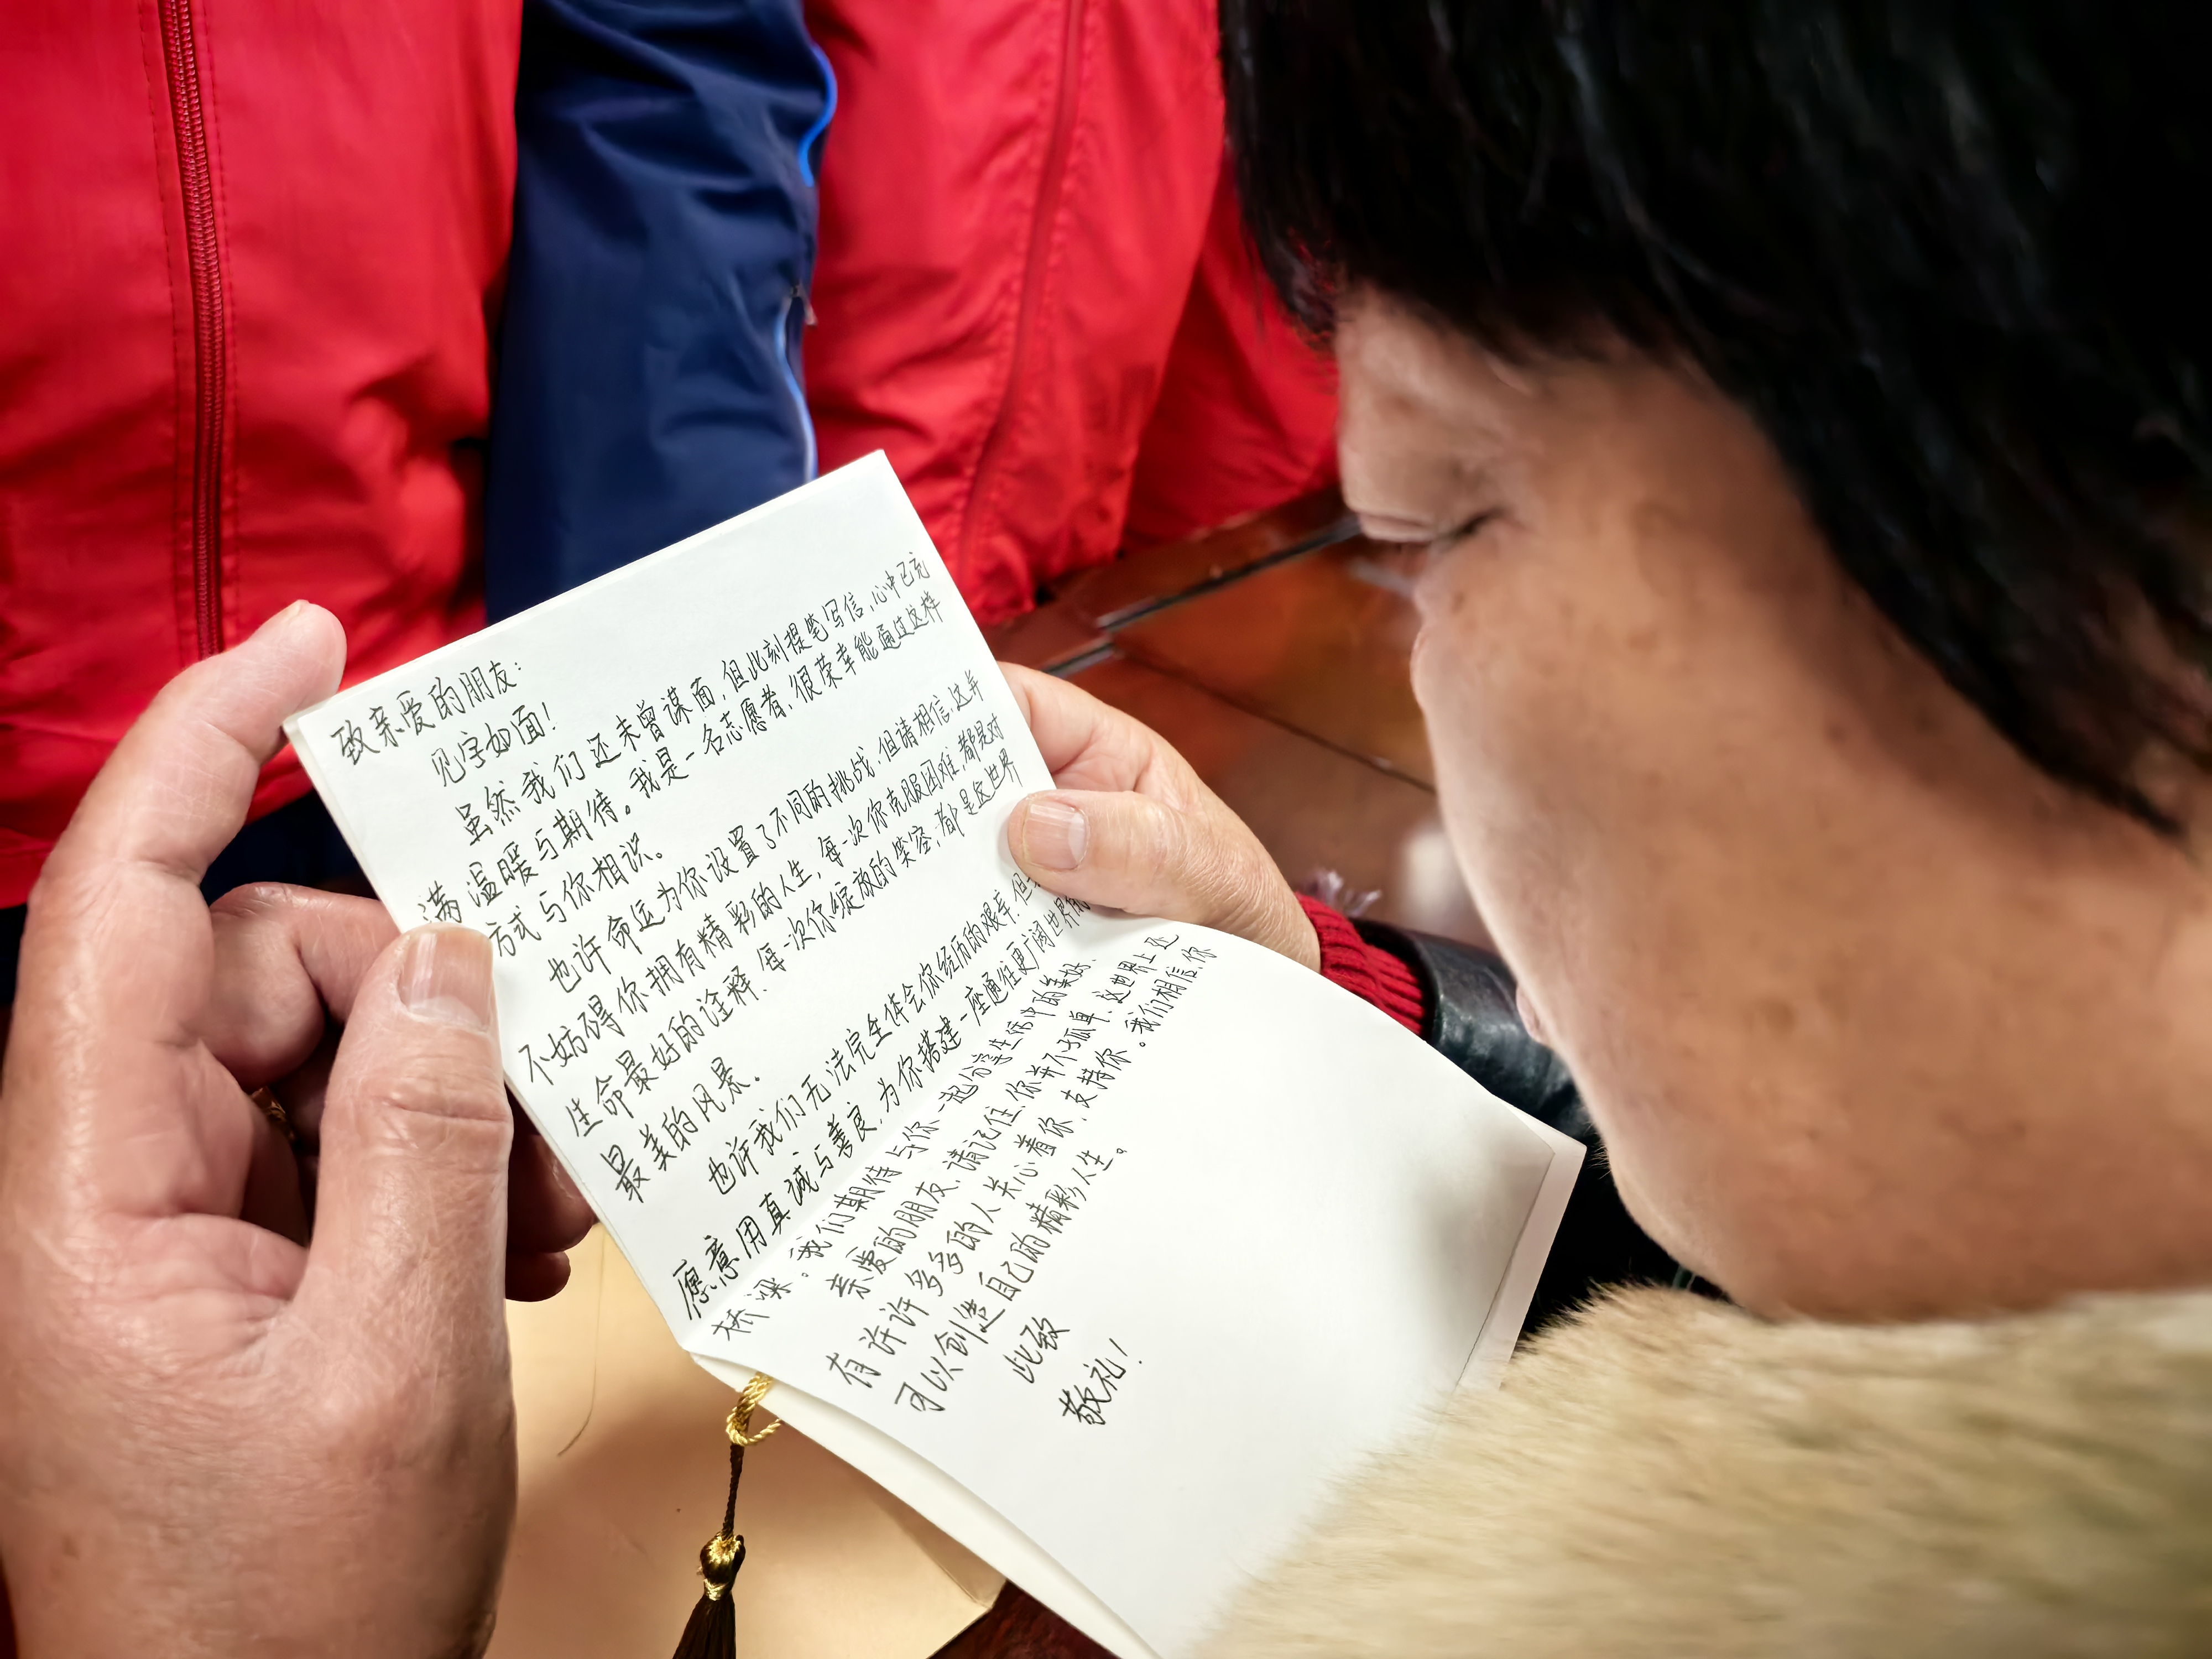 致亲爱的朋友：
见字如面！
虽然我们还未曾谋面，但此刻提笔写信，心中已充
满温暖与期待。我是一名志愿者，很荣幸能通过这样
方式与你相识。
也许命运为你设置了不同的挑战，但请相信，这并
不妨碍你拥有精彩的人生，每一次你克服困难，都是对
生命最好的诠释，每一次你绽放的笑容，都是这世界
最美的风景。
也许我们无法完全体会你经历的艰辛，但
愿意用真诚与善良，为你搭建一座通往更广阔世界的
桥梁。我们期待与你一起分享生活中的美好。
亲爱的朋友，请记住，你并不孤单，这世界上还
有许许多多的人关心着你，支持你。我们相信，你
可以创造自己的精彩人生。
此致
敬礼！